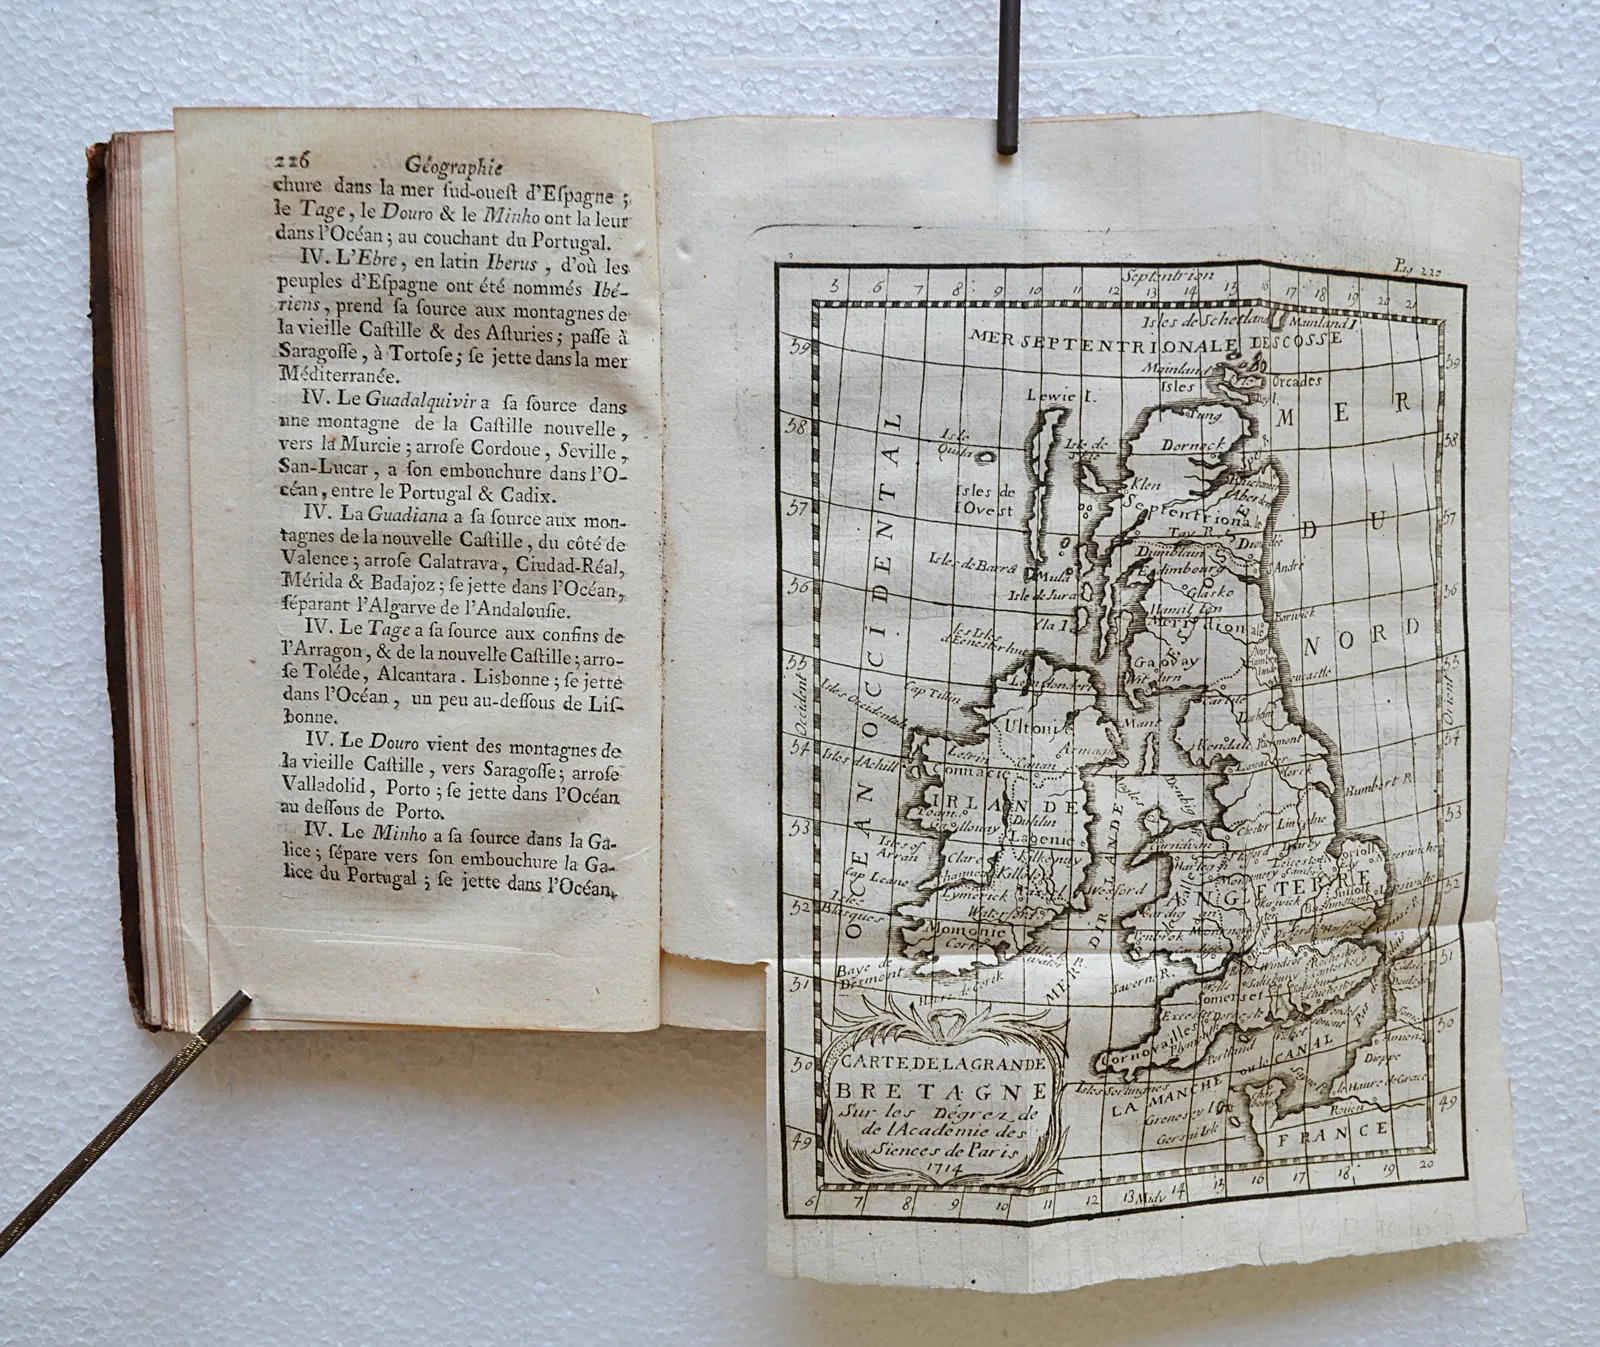 226 Géographie
chure dans la mer ſud-oueſt d'Eſpagne ;
le Tage, le Douro & le Minho ont la leur
dans l'Océan ; au couchant du Portugal.
IV. L'Ebre, en latin Iberus , d'où les
peuples d'Eſpagne ont été nommés Ibé-
riens, prend ſa ſource aux montagnes de
la vieille Caſtille & des Aſturies ; paſſe à
Saragoſſe, à Tortoſe ; ſe jette dans la mer
Méditerranée.
IV. Le Guadalquivir a ſa ſource dans
une montagne de la Caſtille nouvelle,
vers la Murcie ; arroſe Cordoue, Seville,
San-Lucar, a ſon embouchure dans l'O-
céan, entre le Portugal & Cadix.
IV. La Guadiana a ſa ſource aux mon-
tagnes de la nouvelle Caſtille, du côté de
Valence ; arroſe Calatrava, Ciudad-Réal,
Mérida & Badajoz ; ſe jette dans l'Océan,
ſéparant l'Algarve de l'Andalouſie.
IV. Le Tage a ſa ſource aux confins de
l'Arragon, & de la nouvelle Caſtille ; arro-
ſe Toléde, Alcantara. Lisbonne ; ſe jette
dans l'Océan, un peu au-deſſous de Liſ-
bonne.
IV. Le Douro vient des montagnes de
la vieille Caſtille, vers Saragoſſe ; arroſe
Valladolid, Porto ; ſe jette dans l'Océan
au deſſous de Porto.
IV. Le Minho a ſa ſource dans la Ga-
lice ; ſépare vers ſon embouchure la Ga-
lice du Portugal ; ſe jette dans l'Océan,
Septentrion
5 6 7 8 9 10 11 12 13 14 15 16 17 18 19 20 21
Isles de Schetland Mainland I.
MER SEPTENTRIONALE DESCOSSE
Mainland
Isles Orcades
Lewie I.
MER DU NORD
Tung
Dorneck
Isle de
Isles de
l'Ovest
Klen
Aberden
Septentrionale
Tay R.
Dumblain
S. André
Isles de Barra
Mula
Edimbourg
Isle de Jura
Glasko
Hamilton
Barwick
Yla I.
Meridionale
OCEAN OCCIDENTAL
Occident
Orient
Cap Tillin
Isles Occidentales
Ultonie
Armagh
Carlile
Mant
Isles d'Achill
Connacie
Kendale
Humbert R.
IRLANDE
Dublin
Lagenie
Chester
Isles of
Arran
Clare
Kilkenny
Cap Leane
Lymerick
Wexford
ANGLETERRE
Waterford
Momonie
Cork
Baye de
Desmont
MER DIRLANDE
Saverne R.
Windsor
Salisbury
Somerset
Cornovailles
Portland
Isles Sorlingues
LA MANCHE ou le CANAL
Amiens
Dieppe
le Havre de Grace
Rouen
FRANCE
CARTE DE LA GRANDE
BRETAGNE
Sur les Dégrez de
de l'Academie des
Siences de Paris
1714
59
58
57
56
55
54
53
52
51
50
49
6 7 8 9 10 11 12 13 Midy 14 15 16 17 18 19 20